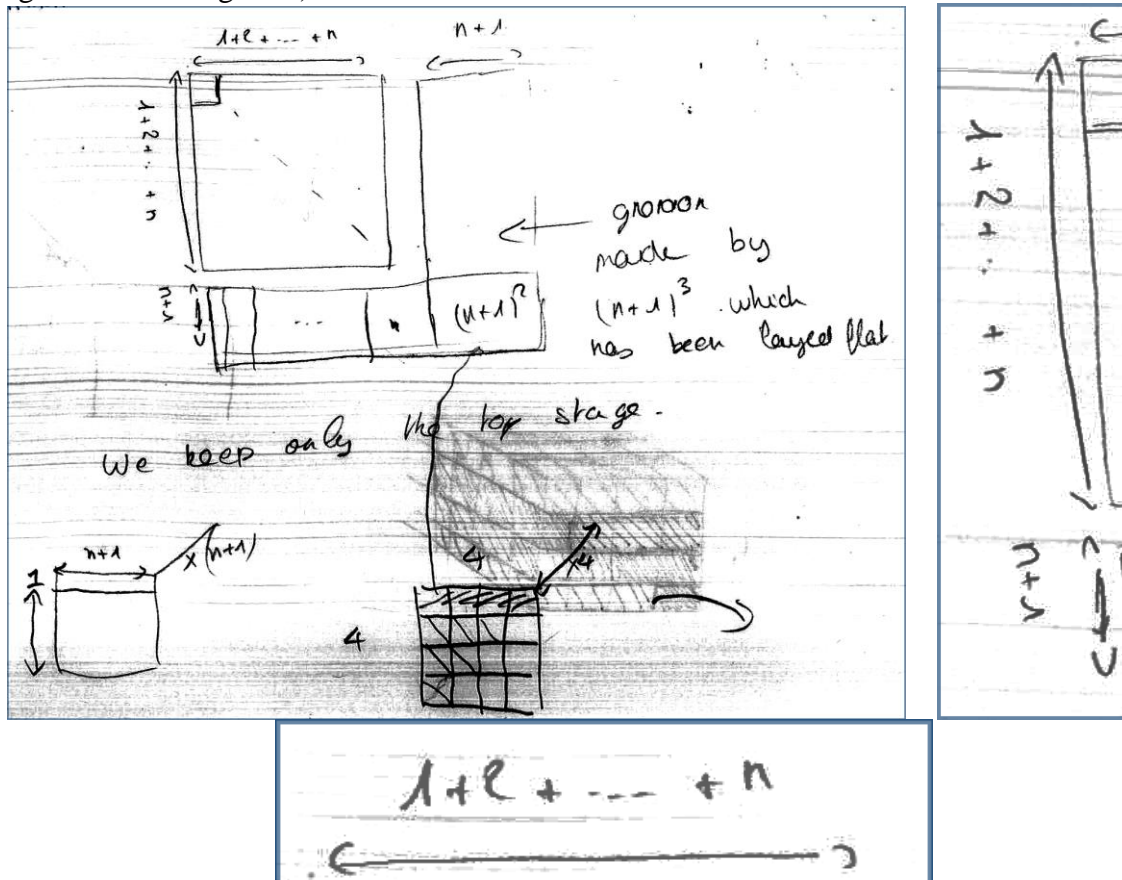 1+2+....+n
n+1
1+2+..+n
gnomon
made by
(n+1)³ which
has been layed flat
n+1
...
(n+1)²
We keep only the top stage.
n+1
×(n+1)
1
4
×4
4
1+2+..+n
n+1
1+2+...+n